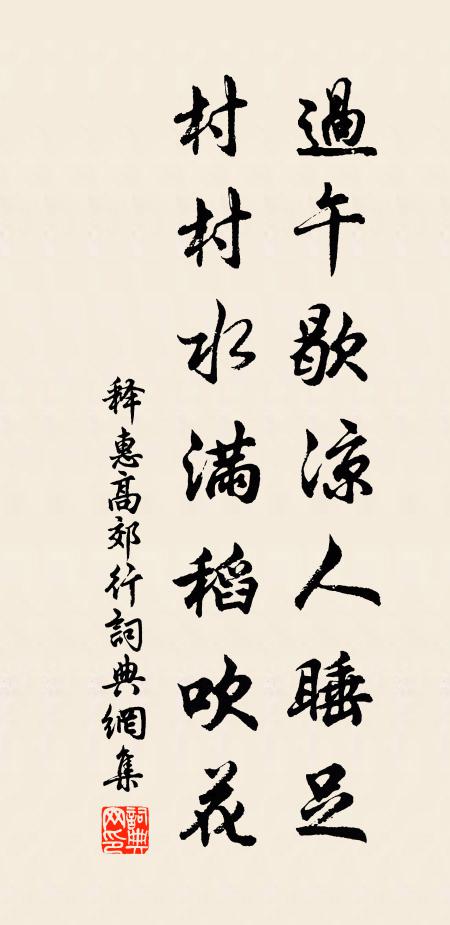 過午歇涼人睡足
村村水滿稻吹花
释惠高郊行詞典網集
詞典網印